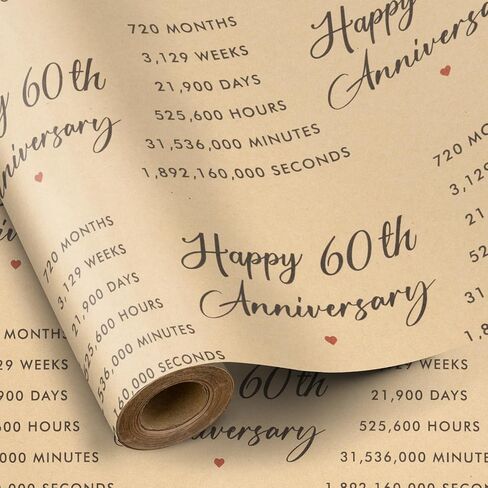 720 MONTHS
3,129 WEEKS
21,900 DAYS
525,600 HOURS
31,536,000 MINUTES
1,892,160,000 SECONDS
Happy
Anniversary
60th
Anniversary
720 MONTHS
3,129 WEEKS
21,900 DAYS
525,600 HOURS
536,000 MINUTES
160,000 SECONDS
Happy 60th
Anniversary
720 MONTHS
3,129
21,9
525,
31,5
1,8
720 MONTHS
29 WEEKS
900 DAYS
600 HOURS
000 MINUTES
000 SECONDS
60th
Anniversary
720 MONTHS
3,129 WEEKS
21,900 DAYS
525,600 HOURS
31,536,000 MINUTES
1,892,160,000 SECONDS